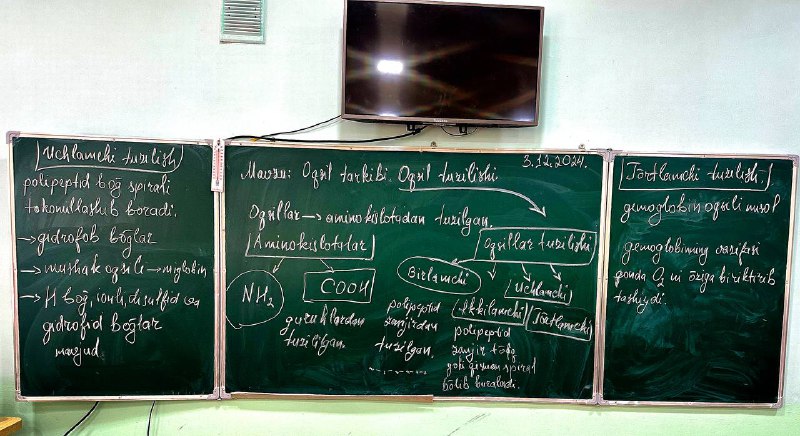 Uchlamchi tuzilish
polipeptid bog' spirali
takomillashib boradi.
→ gidrofob bog'lar
→ mushak oqsili → mioglobin
→ H bog', ionli, disulfid va
gidrofid bog'lar
mavjud
3.12.2024.
Mavzu: Oqsil tarkibi. Oqsil tuzilishi
Oqsillar → aminokislotadan tuzilgan.
Aminokislotalar
NH2
COOH
guruhlardan
tuzilgan.
Oqsillar tuzilishi
Birlamchi
polipeptid
zanjirdan
tuzilgan.
Ikkilamchi
polipeptid
zanjir
spiral
bo'lib buraladi.
Uchlamchi
To'rtlamchi
To'rtlamchi tuzilish.
gemoglobin oqsili misol
gemoglobinning vazifasi
qonda O2 ni o'ziga biriktirib
tashiydi.